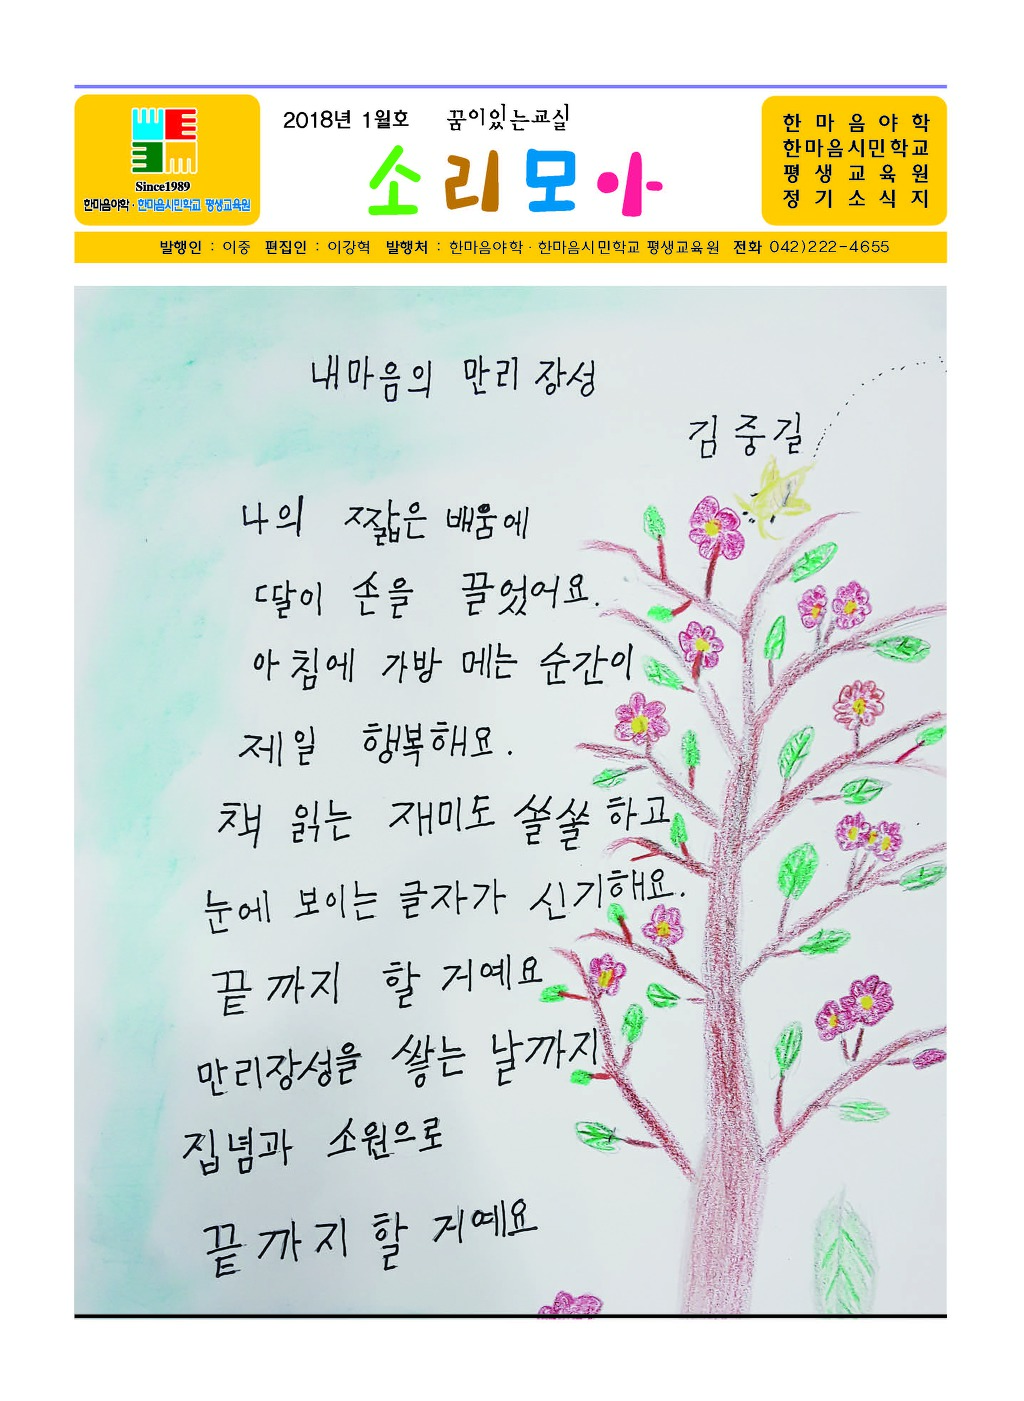 2018년 1월호 꿈이있는교실
소리모아
Since1989
한마음야학·한마음시민학교 평생교육원
한마음야학
한마음시민학교
평생교육원
정기소식지
발행인 : 이중 편집인 : 이강혁 발행처 : 한마음야학·한마음시민학교 평생교육원 전화 042)222-4655
내마음의 만리 장성
김중길
나의 짧은 배움에
딸이 손을 끌었어요.
아침에 가방 메는 순간이
제일 행복해요.
책 읽는 재미도 쏠쏠 하고
눈에 보이는 글자가 신기해요.
끝까지 할 거예요
만리장성을 쌓는 날까지
집념과 소원으로
끝까지 할 거예요